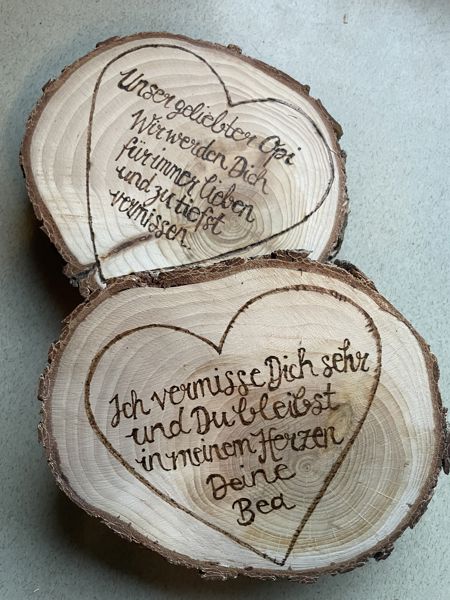 Unser geliebter Opi
Wir werden Dich
für immer lieben
und zutiefst
vermissen.
Ich vermisse Dich sehr
und Du bleibst
in meinem Herzen
Deine
Bea